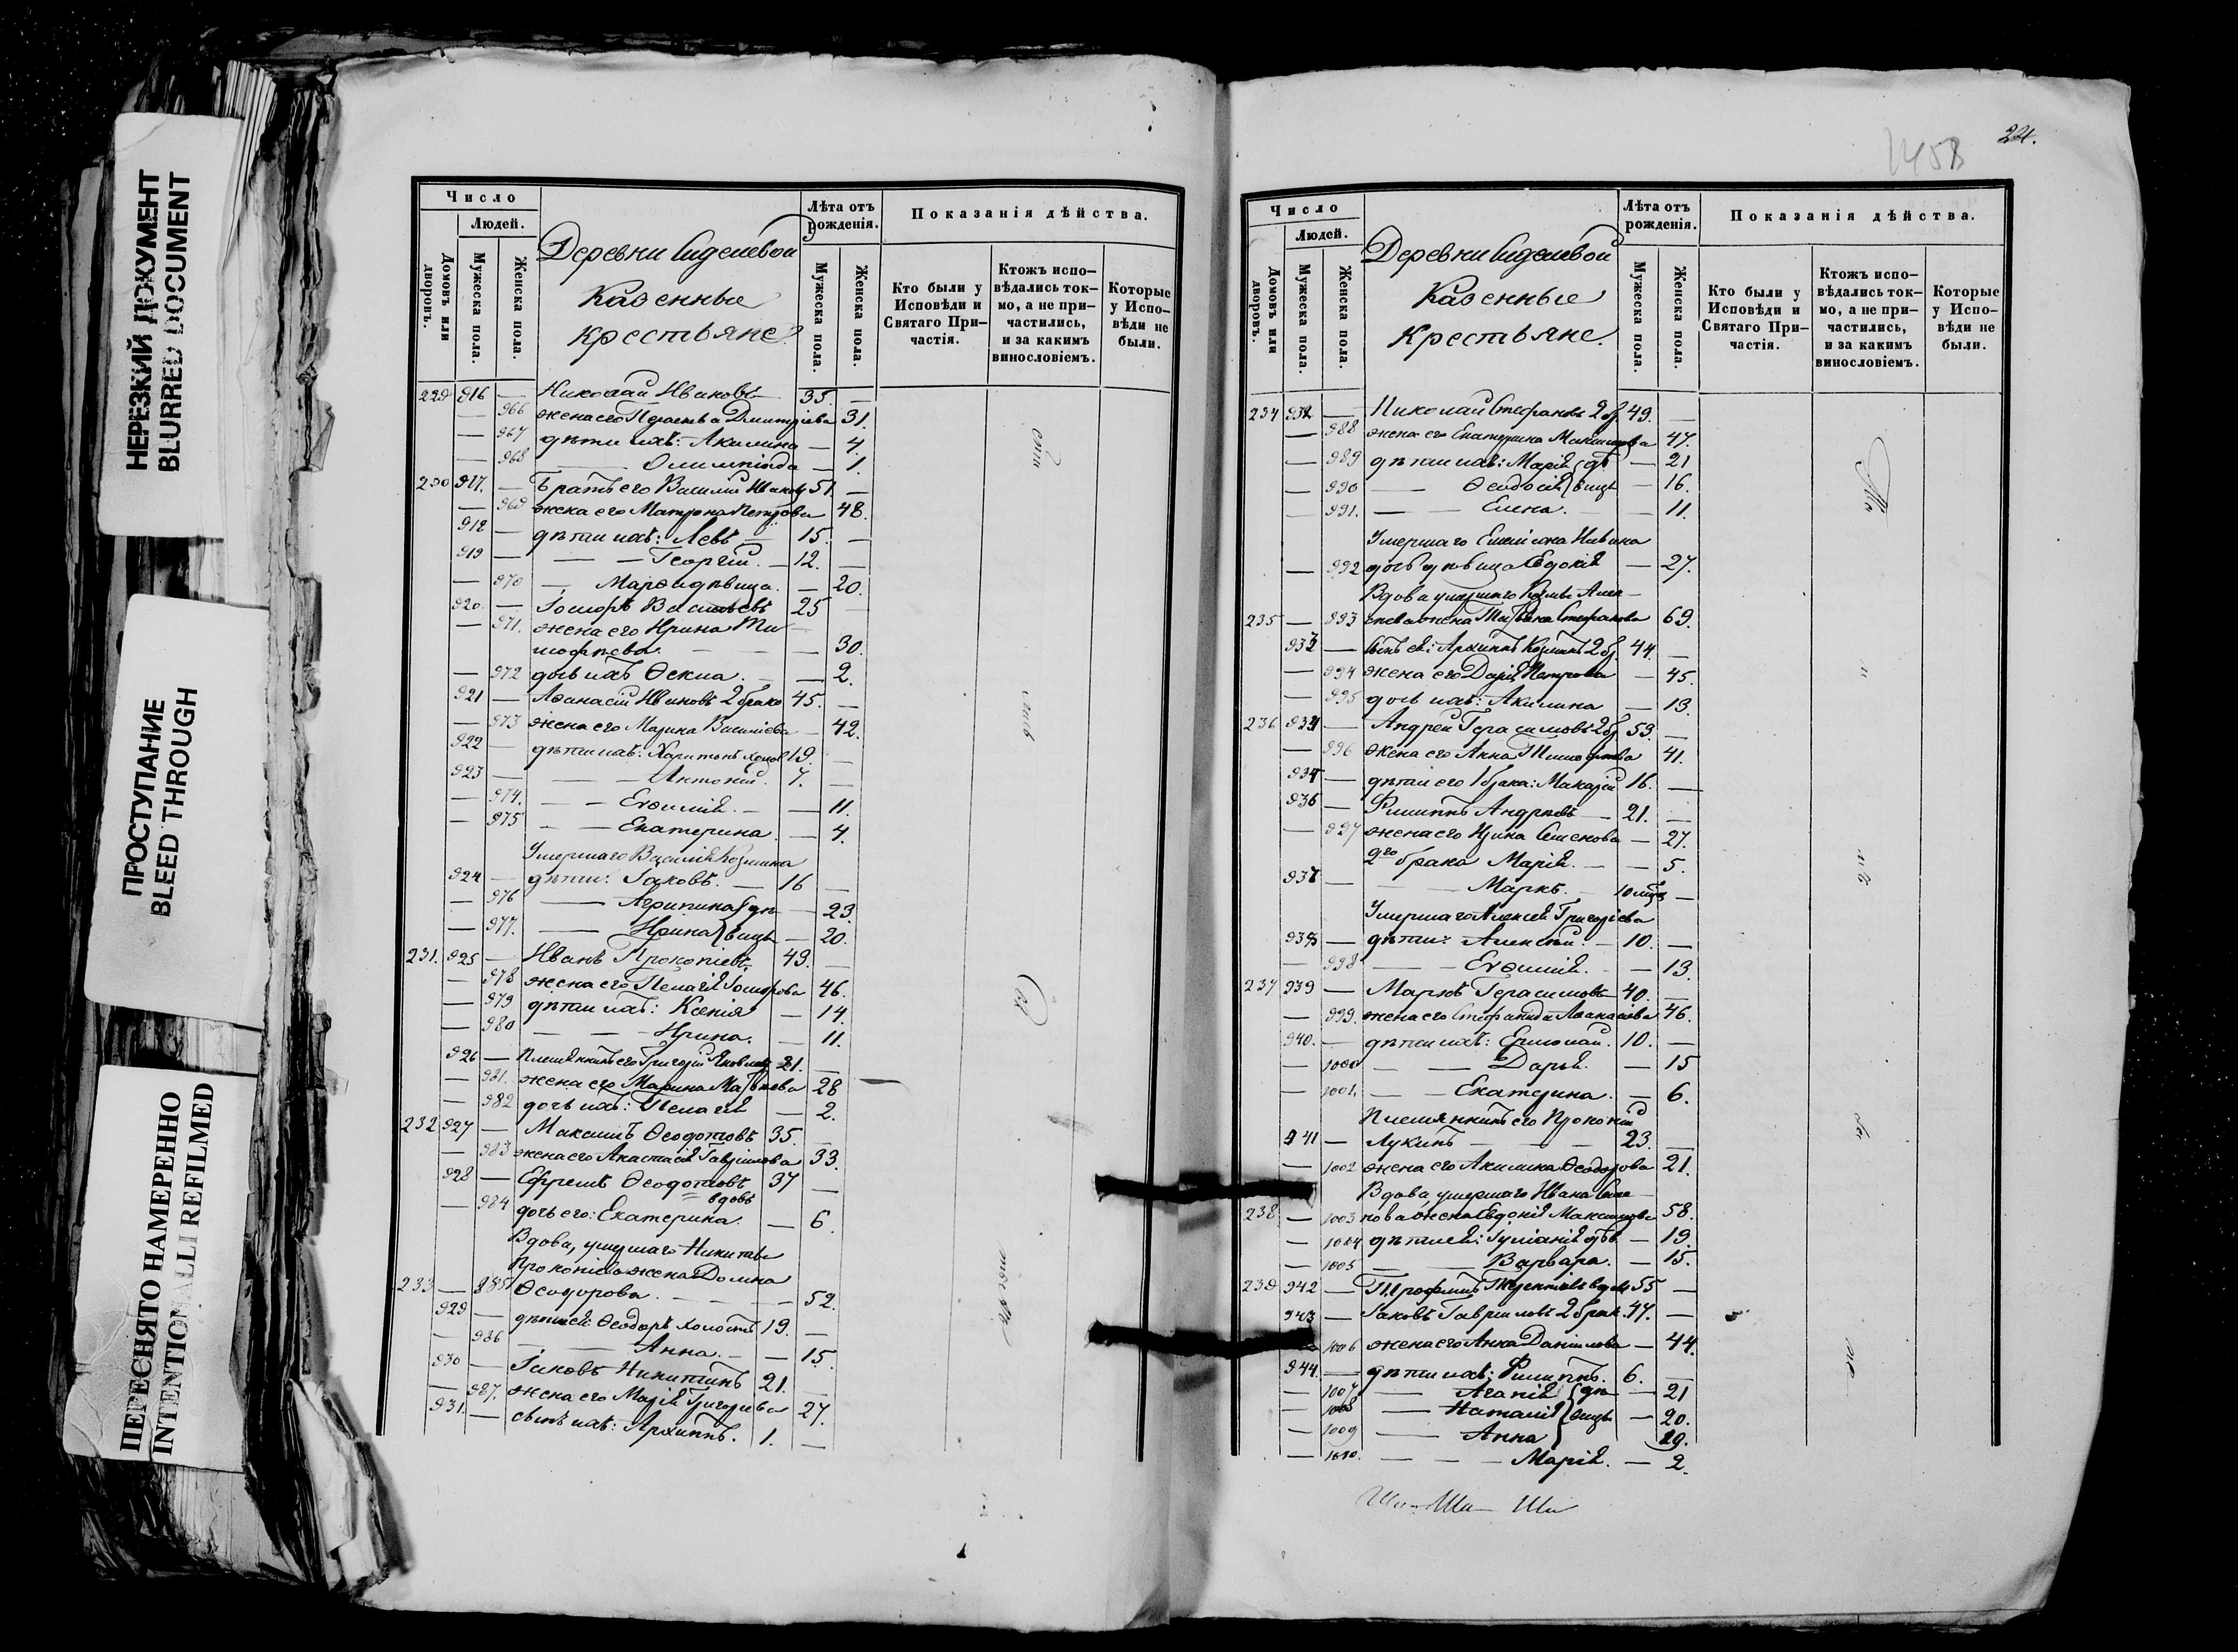 НЕРЕЗКИЙ ДОКУМЕНТ
BLURRED DOCUMENT
ПРОСТУПАНИЕ
BLEED THROUGH
ПЕРЕСНЯТО НАМЕРЕННО
INTENTIONALLI REFILMED
Число
Людей.
Домовъ или дворовъ.
Мужеска пола.
Женска пола.
Деревни
Казенные
Крестьяне.
Лѣта отъ рожденія.
Мужеска пола.
Женска пола.
Показанія дѣйства.
Кто были у Исповѣди и Святаго При-частія.
Ктожъ испо-вѣдались ток-мо, а не при-частились, и за какимъ винословіемъ.
Которые у Испо-вѣди не были.
229 916 — Николай Ивановъ 35. —
— 966 жена его Дмитріева 31.
— 967 дѣти ихъ: Акилина — 4.
— 968 — Олимпіада — 1.
230 917. — Братъ его Василий Ивановъ 51. —
— 969 жена его Матрона Петрова 48.
918 — дѣти ихъ: Левъ — 15. —
919 — — — Георгій. — 12. —
— 970 — Марѳа дѣвица. — 20.
920. — Іосифъ Васильевъ 25 —
— 971. жена его Ирина Ти-
моѳеева. — — — 30.
— 972 дочь ихъ Ѳекла. — — 2.
921 — Аѳанасій Ивановъ 2 брака 45. —
— 973 жена его Марина Василіева — 42.
922 — дѣти ихъ: Харитонъ холос 19. —
923 — — — Антоній. 7. —
— 974. — — Евѳимія. — — 11.
— 975 — — Екатерина. — 4.
Умершаго Василія Козмина
924 — дѣти: Іаковъ. — 16 —
— 976 — Агрипина дѣ- — 23.
— 977. — Ирина вицы — 20.
231. 925 — Иванъ Прокопіевъ 49. —
— 978 жена его Пелагія Іосифова 46.
— 979 дѣти ихъ: Ксенія — 14.
— 980 — — — Ирина. — 11.
926 — Племянникъ его Григорій Яковлевъ 21. —
— 981. жена его Марина Матвѣева 28
— 982 дочь ихъ: Пелагія — 2.
232 927 — Максимъ Ѳеодотовъ 35. —
— 983 жена его Анастасія Гавриилова 33.
928 — Ефремъ Ѳеодотовъ 37 —
вдовъ
— 984 дочь его: Екатерина. — 6.
Вдова, умершаго Никиты
Прокопіева жена Домна
233 — 985 Ѳеодорова. — — — 52.
929 — дѣти ея: Ѳеодоръ холостъ 19. —
— 986 — — Анна. — — 15.
930 — Іаковъ Никитинъ 21. —
— 987. жена его Марія Григорьева 27.
931. — сынъ ихъ: Архиппъ. 1. —
1458
Число
Людей.
Домовъ или дворовъ.
Мужеска пола.
Женска пола.
Деревни
Казенные
Крестьяне.
Лѣта отъ рожденія.
Мужеска пола.
Женска пола.
Показанія дѣйства.
Кто были у Исповѣди и Святаго При-частія.
Ктожъ испо-вѣдались ток-мо, а не при-частились, и за какимъ винословіемъ.
Которые у Испо-вѣди не были.
234 932 — Николай Стефановъ 2 б. 49. —
— 988 жена его Екатерина Максимова 47.
— 989 дѣти ихъ: Марія дѣ — 21
— 990 — Ѳеодосія вицы — 16.
— 991. — — Елена. — — 11.
Умершаго
— 992 дочь дѣвица Евдокія — 27.
Вдова умершаго Козмы Алек-
235 — 993 сѣева жена Татьяна Стефанова 69.
933 — сынъ ея: Архиппъ Козминъ 2 б. 44. —
— 994 жена его Дарія Петрова — 45.
— 995 дочь ихъ: Акилина — 13.
236 934 — Андрей Герасимовъ 2 б. 53. —
— 996 жена его Анна Тимоѳеева 41.
935 — дѣти его 1 брака: Макарій 16. —
936 — Филиппъ Андреевъ — 21. —
— 997 жена его Ирина Семенова — 27.
2го брака Марія. — — 5.
937 — — — Маркъ. — 10 мцъ —
Умершаго Алексѣя Григоріева
938 — дѣти: Алексѣй. — 10. —
— 998 — — Евѳимія. — — 13.
237 939 — Маркъ Герасимовъ 40. —
— 999. жена его Стефанида Аѳанасіева 46.
940. — дѣти ихъ: Ермолай. 10. —
— 1000 — — Дарья. — 15
— 1001. — — Екатерина. — 6.
Племянникъ его Прокопій
941 — Лукинъ — — — 23. —
— 1002 жена его Акилина Ѳеодорова 21.
Вдова, умершаго Ивана Семе-
238 — 1003 нова жена Евдокія Максимова 58.
— 1004 дѣти ея: Іуліанія дѣв. — 19.
— 1005 — — Варвара. — 15.
239 942 — Трофимъ Терентіевъ вдовъ 55 —
943 — Іаковъ Гавриловъ 2 брак. 47. —
1006 жена его Анна Даніилова — 44.
944. — дѣти ихъ: Филиппъ. 6. —
— 1007 — Агапія дѣ — 21
— 1008 — Наталія вицы — 20.
— 1009 — Анна 19.
— 1010. — — — Марія. — 2.